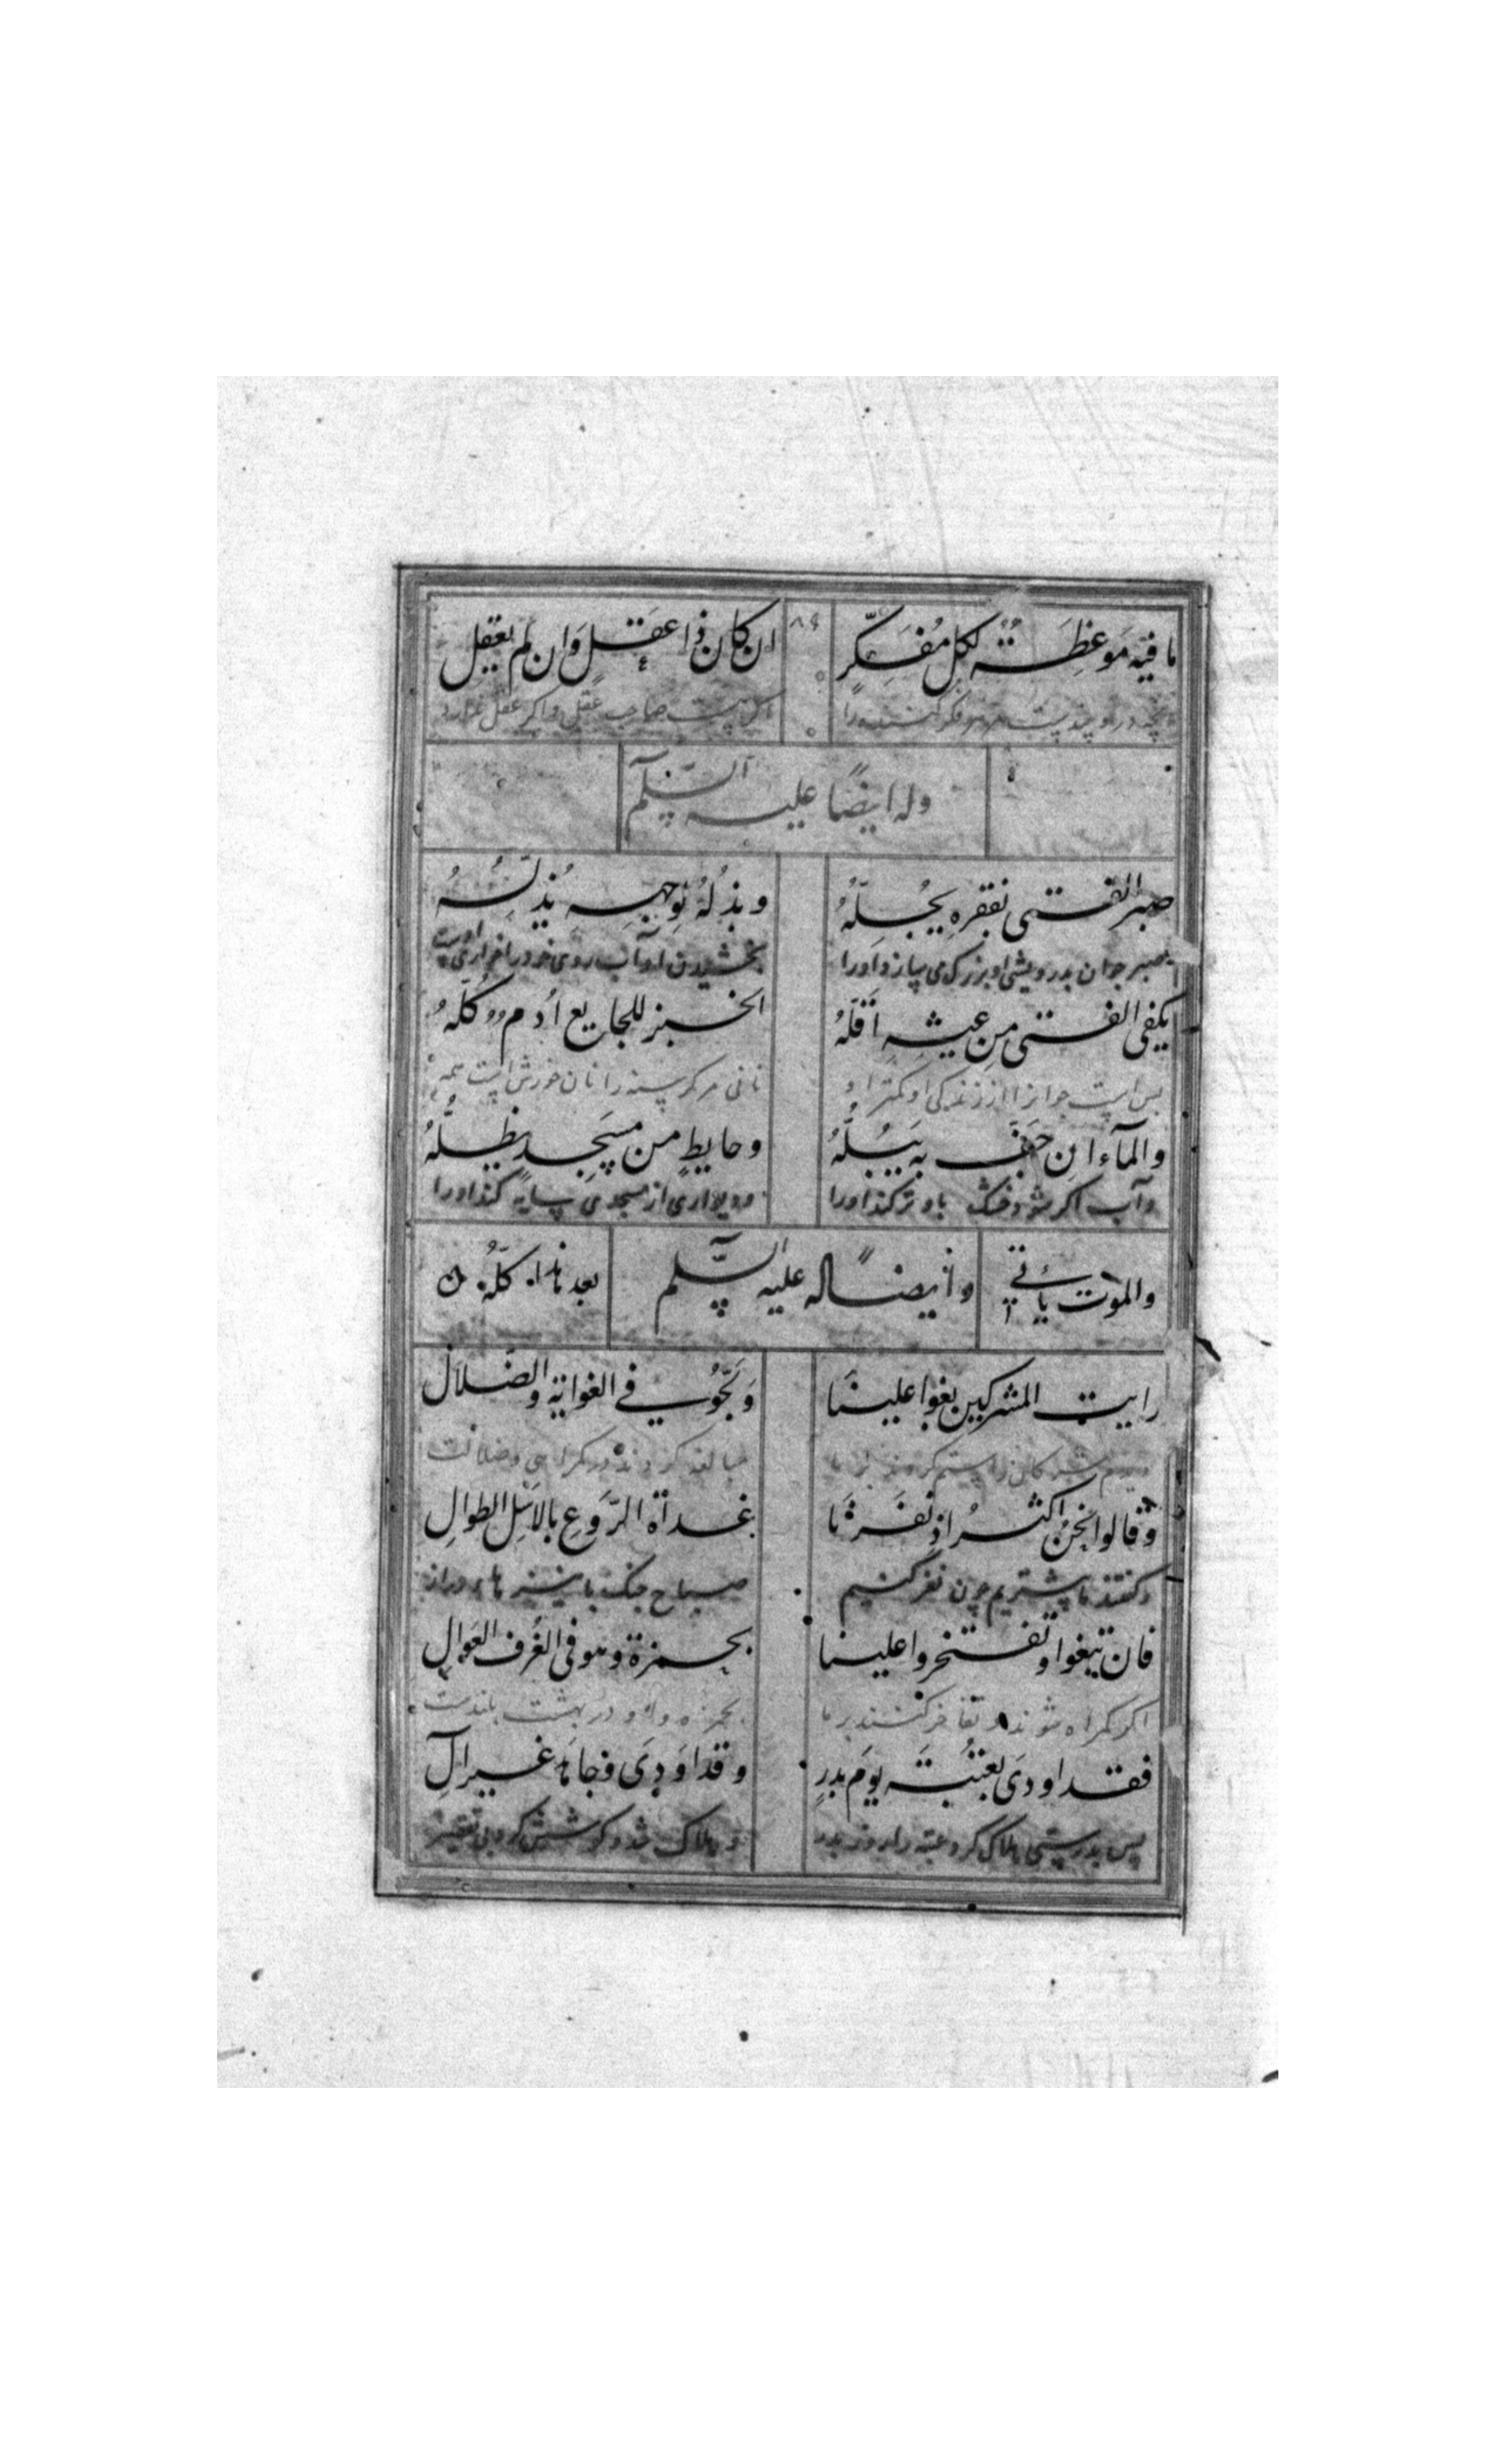 ما فيه مَوعِظَةٌ لكلِ مُفَكِّرٍ ان كان ذا عقلٍ وَان لم يَعقِلِ
در و پندیست هر فکر کننده را اگر هست صاحب عقل و اگر عقل ندارد
وله ايضًا عليه السّلم
صبر الفتى بفقرهِ يُجِلُّهُ و بذلُهُ لِوجهِهِ يُذِلُّهُ
صبر جوان بدرویشی او بزرگ می سازد او را بخشیدن او آب روی خود را
يكفى الفتى مِن عيشِهِ أقَلّهُ الخبز للجايع أُدمٌ كُلّهُ
بس است جوانرا از زندگی او کمتر او نانی مر گرسنه را نان خورش است همه
والمآء ان جَفَّ به يَبُلُّهُ و حايطٍ من مسجدٍ يُظِلُّهُ
و آب اگر شود خشک باو تر کند او را و دیواری از مسجدی سایه کند او را
والموت يأتي بعد هذا كلّهُ
و أيضًا له عليه السّلم
رايت المشركين بغوا علينَا وَلَجّوا في الغواية والضّلال
مبالغه کردند در گمراهی و ضلالت
و قالوا نحنُ اكثرُ اذ نَفَرنَا غداة الرَّوعِ بالاَسَلِ الطوالِ
و گفتند ما بیشتریم چون نفر کنیم صباح جنگ با نیزه های دراز
فان تبغوا و تفتخروا علينا بحمزة و هو فى الغُرفِ العَوالِ
اگر گمراه شوند و تفاخر کنند بر ما بحمزه و او در بهشت بلندست
فقد اودَى بعُتبَةَ يومَ بدرٍ و قد اَودَى و جاهد غير آلِ
پس بدرستی هلاک کرد عتبه را روز بدر و هلاک شد و کوشش کرد بی تقصیر